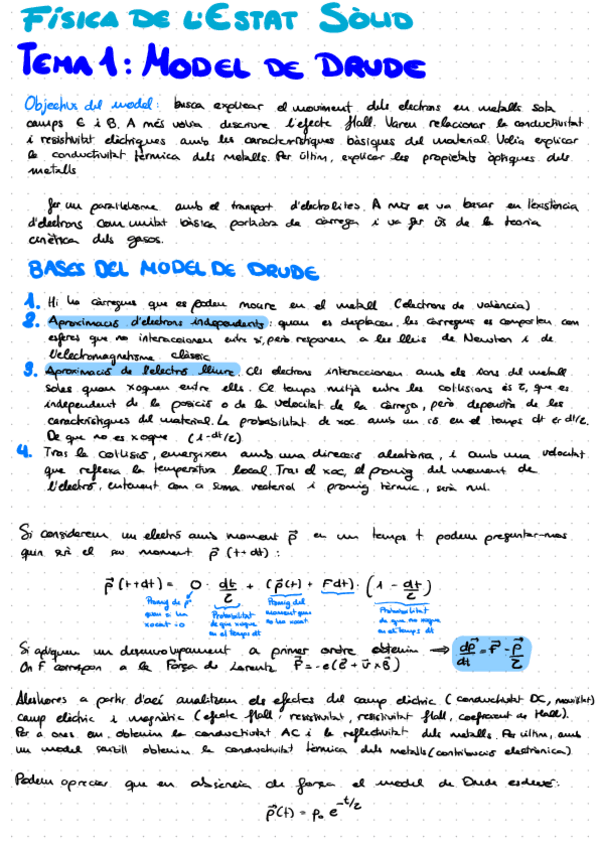 FÍSICA DE L'ESTAT SÒLID
TEMA 1: MODEL DE DRUDE
Objectiu del model: busca explicar el moviment dels electrons en metalls sota
camps E i B. A més volia descriure l'efecte Hall. Varen relacionar la conductivitat
i resistivitat elèctriques amb les característiques bàsiques del material. Volia explicar
la conductivitat tèrmica dels metalls. Per últim, explicar les propietats òptiques dels
metalls
fer un paral·lelisme amb el transport d'electrolites. A més es va basar en l'existència
d'electrons com unitat bàsica portadora de càrrega i va fer ús de la teoria
cinètica dels gasos.
BASES DEL MODEL DE DRUDE
1. Hi ha càrregues que es poden moure en el metall (electrons de valència)
2. Aproximació d'electrons independents: quan es desplacen, les càrregues es comporten com
esferes que no interaccionen entre si, però responen a les lleis de Newton i de
l'electromagnetisme clàssic
3. Aproximació de l'electró lliure. Els electrons interaccionen amb els ions del metall
soles quan xoquen entre ells. El temps mitjà entre les col·lisions és τ, que és
independent de la posició o de la velocitat de la càrrega, però dependrà de les
característiques del material. La probabilitat de xoc amb un ió en el temps dt és dt/τ.
De que no es xoque (1-dt/τ)
4. Tras la col·lisió, emergixen amb una direcció aleatòria, i amb una velocitat
que reflexa la temperatura local. Tras el xoc, el promig del moment de
l'electró, entonant com a suma vectorial i promig tèrmic, serà nul.
Si considerem un electró amb moment p⃗ en un temps t podem preguntar-nos
quin serà el seu moment p⃗(t+dt):
p⃗(t+dt) = 0 · dt/τ + (p⃗(t) + Fdt) · (1 - dt/τ)
Promig de p⃗ quan si han xocat = 0
Probabilitat de que xoque en el temps dt
Promig del moment quan no han xocat
Probabilitat de que no xoque en el temps dt
Si apliquem un desenvolupament a primer ordre obtenim ⟹ dp⃗/dt = F⃗ - p⃗/τ
On F correspon a la Força de Lorentz F⃗ = -e(E⃗ + v⃗ x B⃗)
Aleshores a partir d'ací analitzem els efectes del camp elèctric (conductivitat DC, movilitat)
camp elèctric i magnètic (efecte Hall, resistivitat, resistivitat Hall, coeficient de Hall).
Per a ones em. obtenim la conductivitat AC i la reflectivitat dels metalls. Per últim, amb
un model senzill obtenim la conductivitat tèrmica dels metalls (contribució electrònica)
Podem apreciar que en absència de força el model de Drude esdevé:
p⃗(t) = p₀ e^(-t/τ)